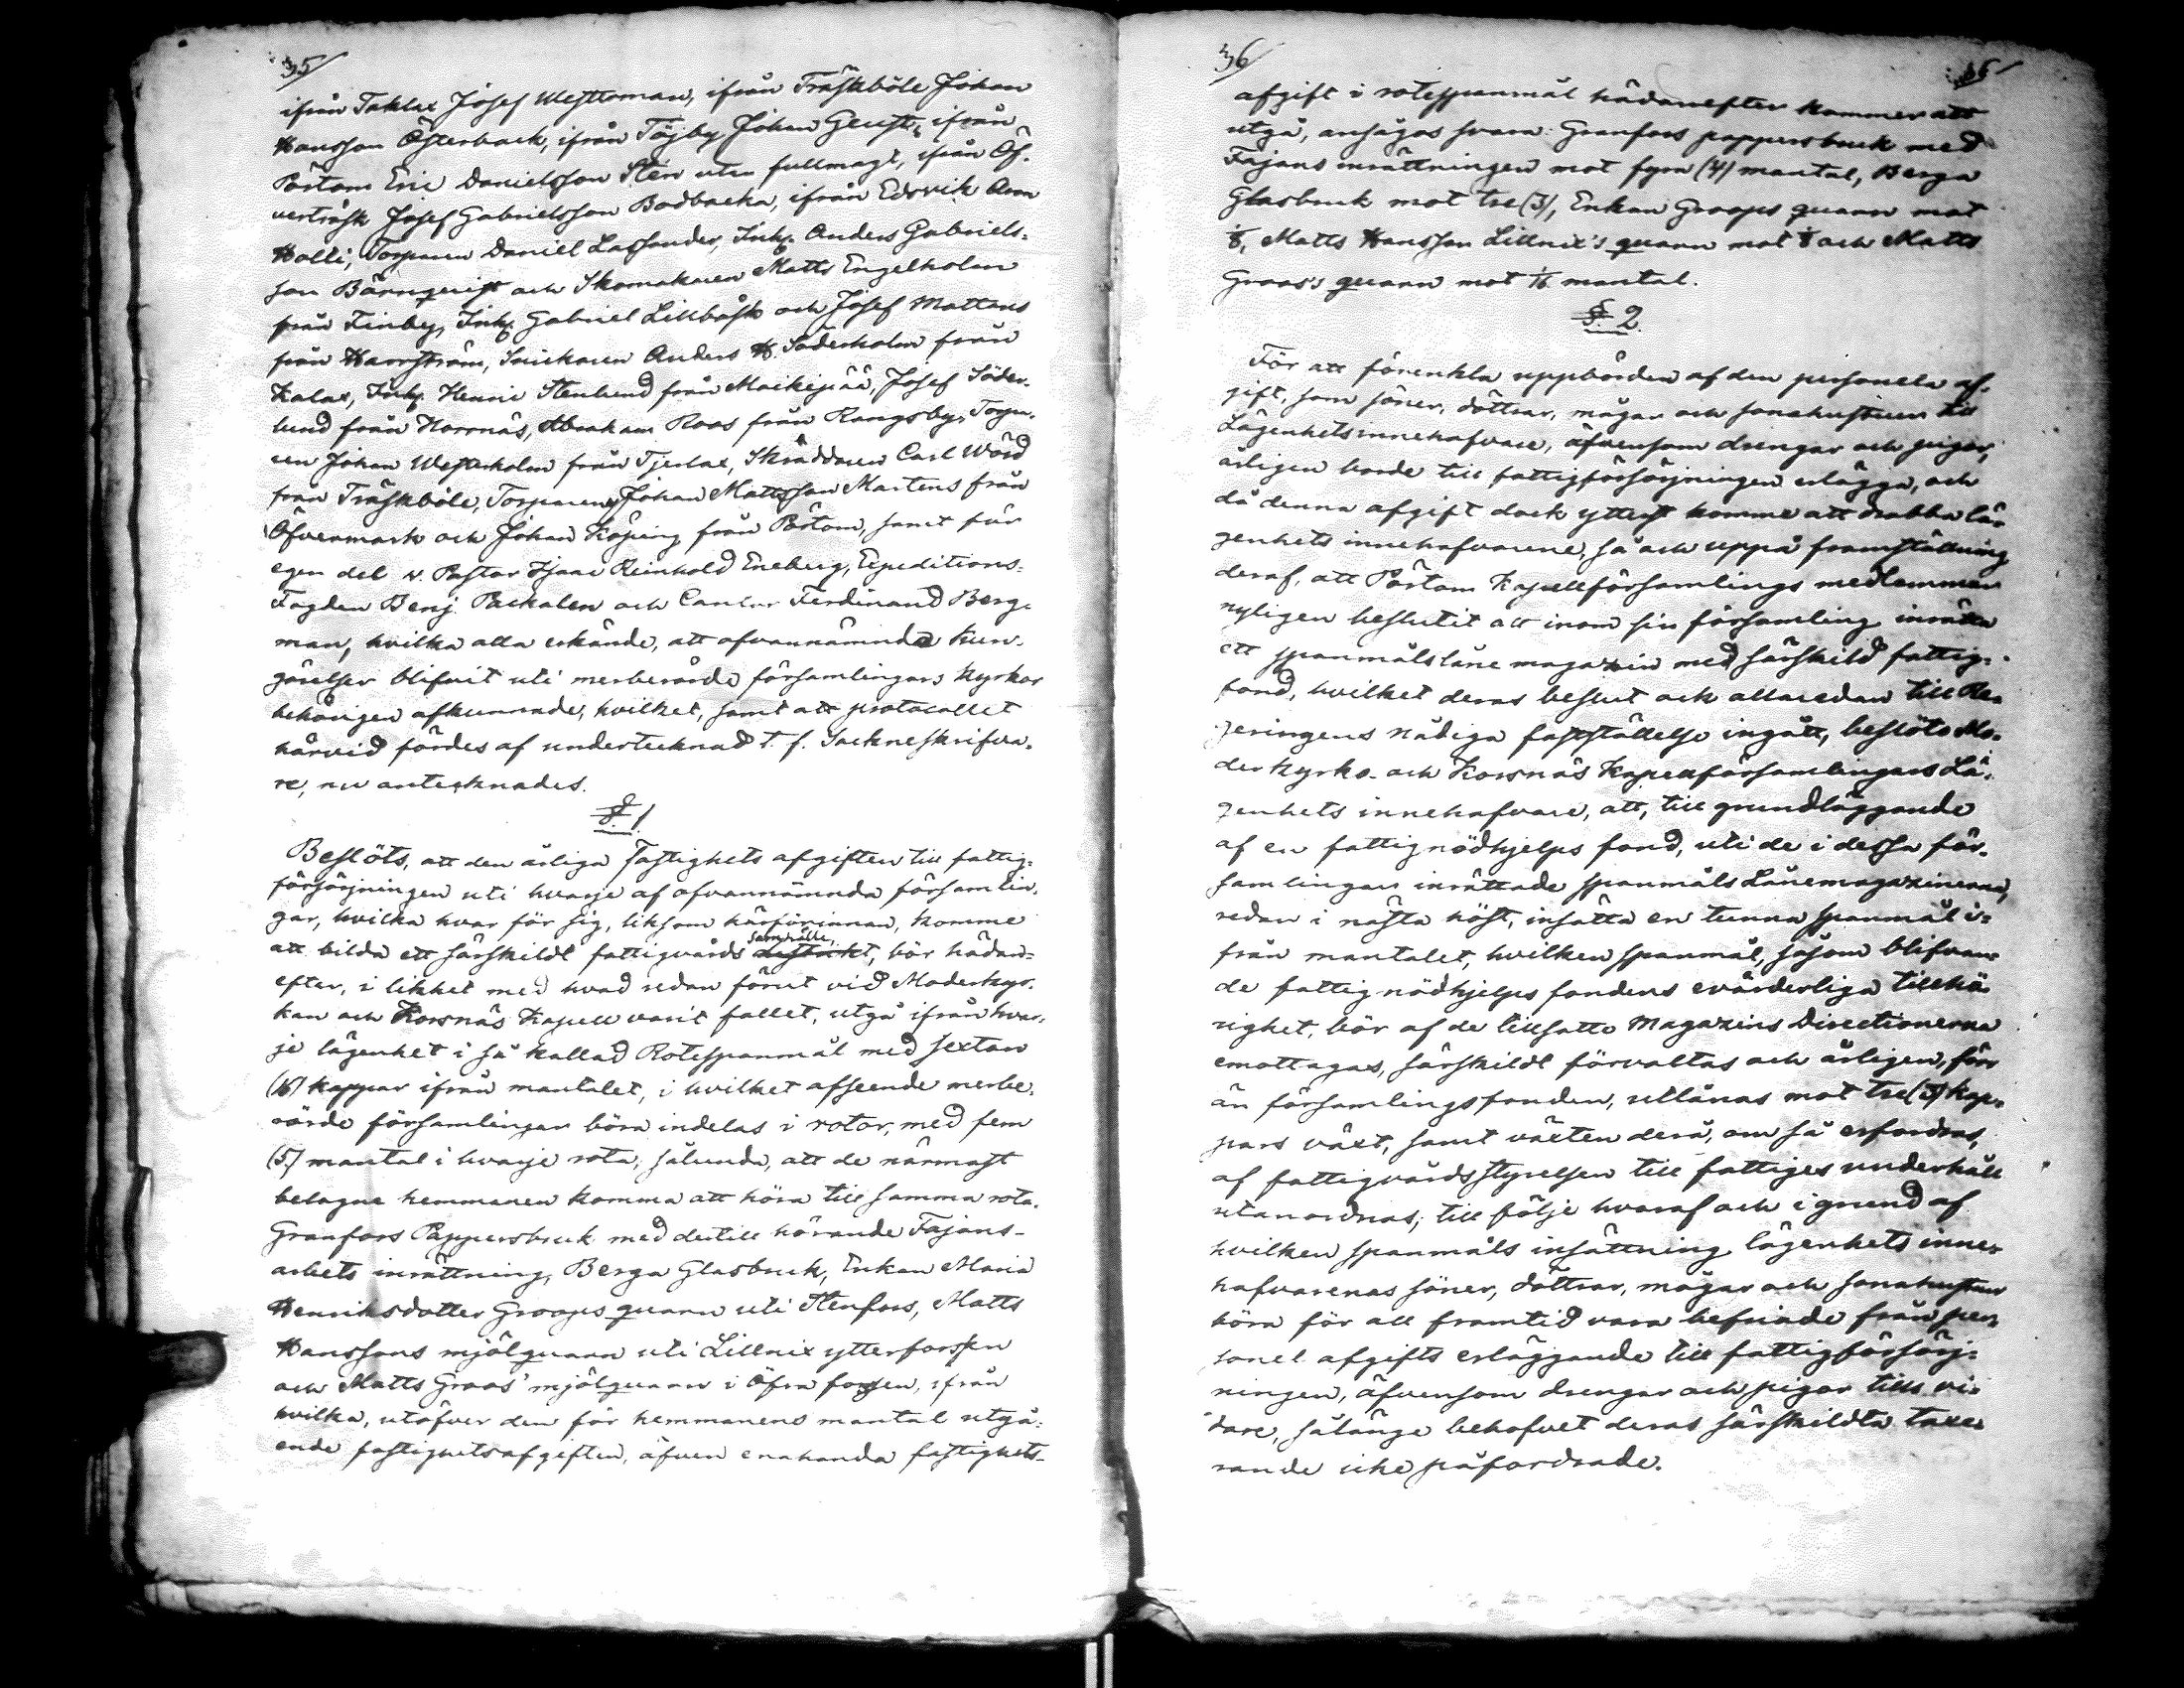 35/
ifrån Taklax Josef Westtoman, ifrån Träskböle Johan
Hansson Österback, ifrån Töjby Johan Geust, ifrån
Pörtom Eric Danielsson Sten utan fullmagt, ifrån Öf-
verträsk Josef Gabrielsson Bodbacka, ifrån Edsvik Aron
Holti, Torparen Daniel Lassander, Inh. Anders Gabriels-
son Bärnquist och Skomakaren Matts Engelholm
från Finby, Inh. Gabriel Lillbåsk och Josef Mattans
från Harrström, Snickaren Anders H. Söderholm från
Kalax, Inh. Henric Stenlund från Maikipää, Josef Söder-
lund från Korsnäs, Abraham Roos från Rangsby, Torpa-
ren Johan Westerholm från Tjerlax, Skräddaren Carl Wörd
från Träskböle, Torparen Johan Mattsson Martens från
Öfvermark och Johan Köping från Pörtom, samt för
egen del v. Pastor Isaac Reinhold Eneberg, Expeditions-
Fogden Benj. Packalen och Cantor Ferdinand Berg-
man, hvilka alla erkände, att ofvannämnda kun-
görelser blifvit uti merberörde församlingars kyrkor
behörigen afkunnade, hvilket, samt att protocollet
härvid fördes af undertecknad t. f. Sockneskrifva-
re, nu antecknades.
§. 1
Beslöts, att den årliga fastighets afgiften till fattig-
försörjningen uti hvarje af ofvannämnda församlin-
gar, hvilka hvar för sig, liksom härförinnan, komme
samhälle,
att bilda ett särskildt fattigvårds distrikt, bör hädan-
efter, i likhet med hvad redan förut vid Moderkyr-
kan och Korsnäs Kapell varit fallet, utgå ifrån hvar-
je lägenhet i så kallad Rotespanmål med sexton
(16) kappar ifrån mantalet, i hvilket afseende merbe-
rörde församlingar böra indelas i rotar, med fem
(5) mantal i hvarje rota, sålunda, att de närmast
belagne hemmanen komma att höra till samma rota.
Granfors Pappersbruk med dertill hörande Fajans-
arbets inrättning, Berga Glasbruk, Enkan Maria
Henriksdotter Groops quarn uti Stenfors, Matts
Hanssons mjölquarn uti Lillnix ytterforssen
och Matts Groos' mjölquarn i Öfra forssen, ifrån
hvilka, utöfver den för hemmanens mantal utgå-
ende fastighetsafgiften, äfven enahanda fastighets-
36/
afgift i rotespanmål hädanefter kommer att
utgå, ansågos svara: Granfors pappersbruk med
Fajans inrättningen mot fyra (4) mantal, Berga
Glasbruk mot tre (3), Enkan Groops quarn mot
1/8, Matts Hansson Lillnix's quarn mot 1/8 och Matts
Groos's quarn mot 1/16 mantal.
§. 2.
För att förenkla uppbörden af den personela af-
gift, som söner, döttrar, mågar och sonahustrur till
Lägenhetsinnehafvare, äfvensom drengar och pigor,
årligen borde till fattigförsörjningen erlägga, och
då denna afgift dock ytterst komme att drabba lä-
genhets innehafvarene, så och uppå framställning
deraf, att Pörtom Kapellförsamlings medlemmar
nyligen beslutit att inom sin församling inrätta
ett spanmålslåne magazin med särskild fattig-
fond, hvilket deras beslut ock allaredan till Re-
geringens nådiga fastställelse ingått, beslöto Mo-
derkyrko- och Korsnäs Kapellförsamlingars Lä-
genhets innehafvare, att, till grundläggande
af en fattignödhjelps fond, uti de i dessa för-
samlingar inrättade spanmåls Lånemagazinerna,
redan i nästa höst, insätta en tunna spanmål i-
från mantalet, hvilken spanmål, såsom blifvan-
de fattignödhjelps fondens evärderliga tillhö-
righet, bör af de tillsatte Magazins Directionerna
emottagas, särskildt förvaltas och årligen, förr
än församlingsfonden, utlånas mot tre (3) kap-
pars växt, samt växten derå, om så erfordras,
af fattigvårdsstyrelsen till fattiges underhåll
utanordnas; till följe hvaraf och i grund af
hvilken spanmåls insättning lägenhets inne-
hafvarenas söner, döttrar, mågar och sonahustrur
böra för all framtid vara befriade från per-
sonel afgifts erläggande till fattigförsörj-
ningen, äfvensom drengar och pigor tills vi-
dare, sålänge behofvet deras särskildta taxe-
rande icke påfordrade.